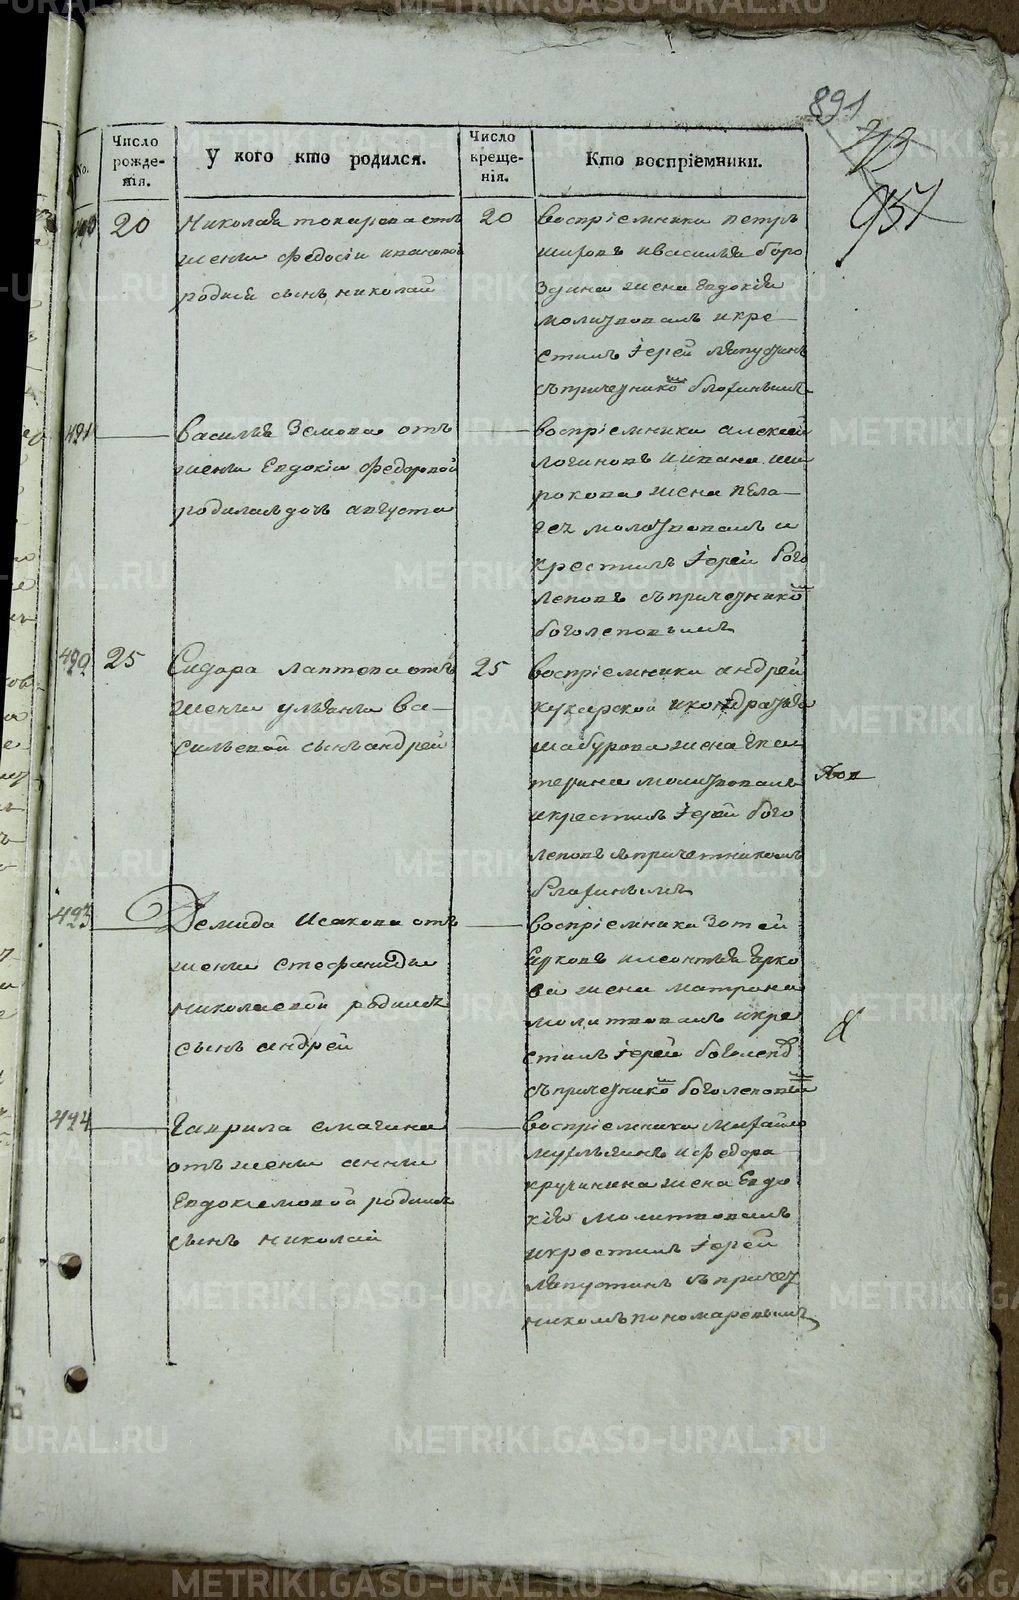 891
951
No.
Число рожде-нія.
У кого кто родился.
Число креще-нія.
Кто воспріемники.
490
20
Николая токарева отъ
жены Федосіи ивановой
родися сынъ николай
20
воспріемники петръ
шировъ и василья боро
здина жена евдокія
молитвовалъ и кре
стилъ Іерей ляпустинъ
съ причетникомъ
491
василья Земова отъ
жены Евдокіи Федоровой
родилась дочь августа
воспріемники алексей
логиновъ и ивана ши
рокова жена пела
гея молитвовалъ и
крестилъ Іерей бого
леповъ съ причетникомъ
боголеповымъ
492
25
Сидора лаптева отъ
жены ульяны ва
сильевой сынъ андрей
25
воспріемники андрей
кукарской и кондратья
шабурова жена ека
терина молитвовалъ
и крестилъ Іерей бого
леповъ съ причетникомъ
493
Демида Исакова отъ
жены стефаниды
николаевой родился
сынъ андрей
воспріемники Зотей
Ерковъ и леонтья Ерко
ва жена матрона
молитвовалъ и кре
стилъ Іерей боголеповъ
съ причетникомъ боголеповымъ
494
Гаврила смагина
отъ жены анны
Евдокимовой родился
сынъ николай
воспріемники михайло
и федора
кручинина жена Евдо
кія молитвовалъ
и крестилъ Іерей
ляпустинъ съ причет
никомъ пономаревымъ
METRIKI.GASO-URAL.RU